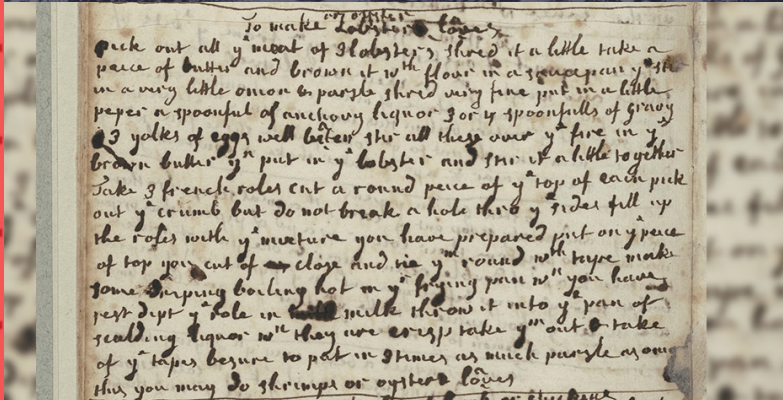 To make Lobster loves
pick out all yᵉ meat of 3 lobsters shred it a little take a
peice of butter and brown it wᵗʰ flour in a saucepan yⁿ stir
in a very little onion & parsle shred very fine put in a little
peper a spoonful of anchovy liquor 3 or 4 spoonfulls of gravy
3 yolks of eggs well beten stir all these over yᵉ fire in yᵉ
brown butter yⁿ put in yᵉ lobster and stir it a little together
Take 3 french roles cut a round peice of yᵉ top of each pick
out yᵉ crumb but do not break a hole thro yᵉ sides fill up
the roles with yᵉ mixture you have prepared put on yᵉ peice
of top you cut of close and tie yᵐ round wᵗʰ tape make
some driping boiling hot in yᵉ frying pan wⁿ you have
just dipt yᵉ role in milk throw it into yᵉ pan of
scalding liquor wⁿ they are crisp take yᵐ out & take
of yᵉ tapes besure to put in 3 times as much parsle as onion
this you may do shrimps or oyster loves